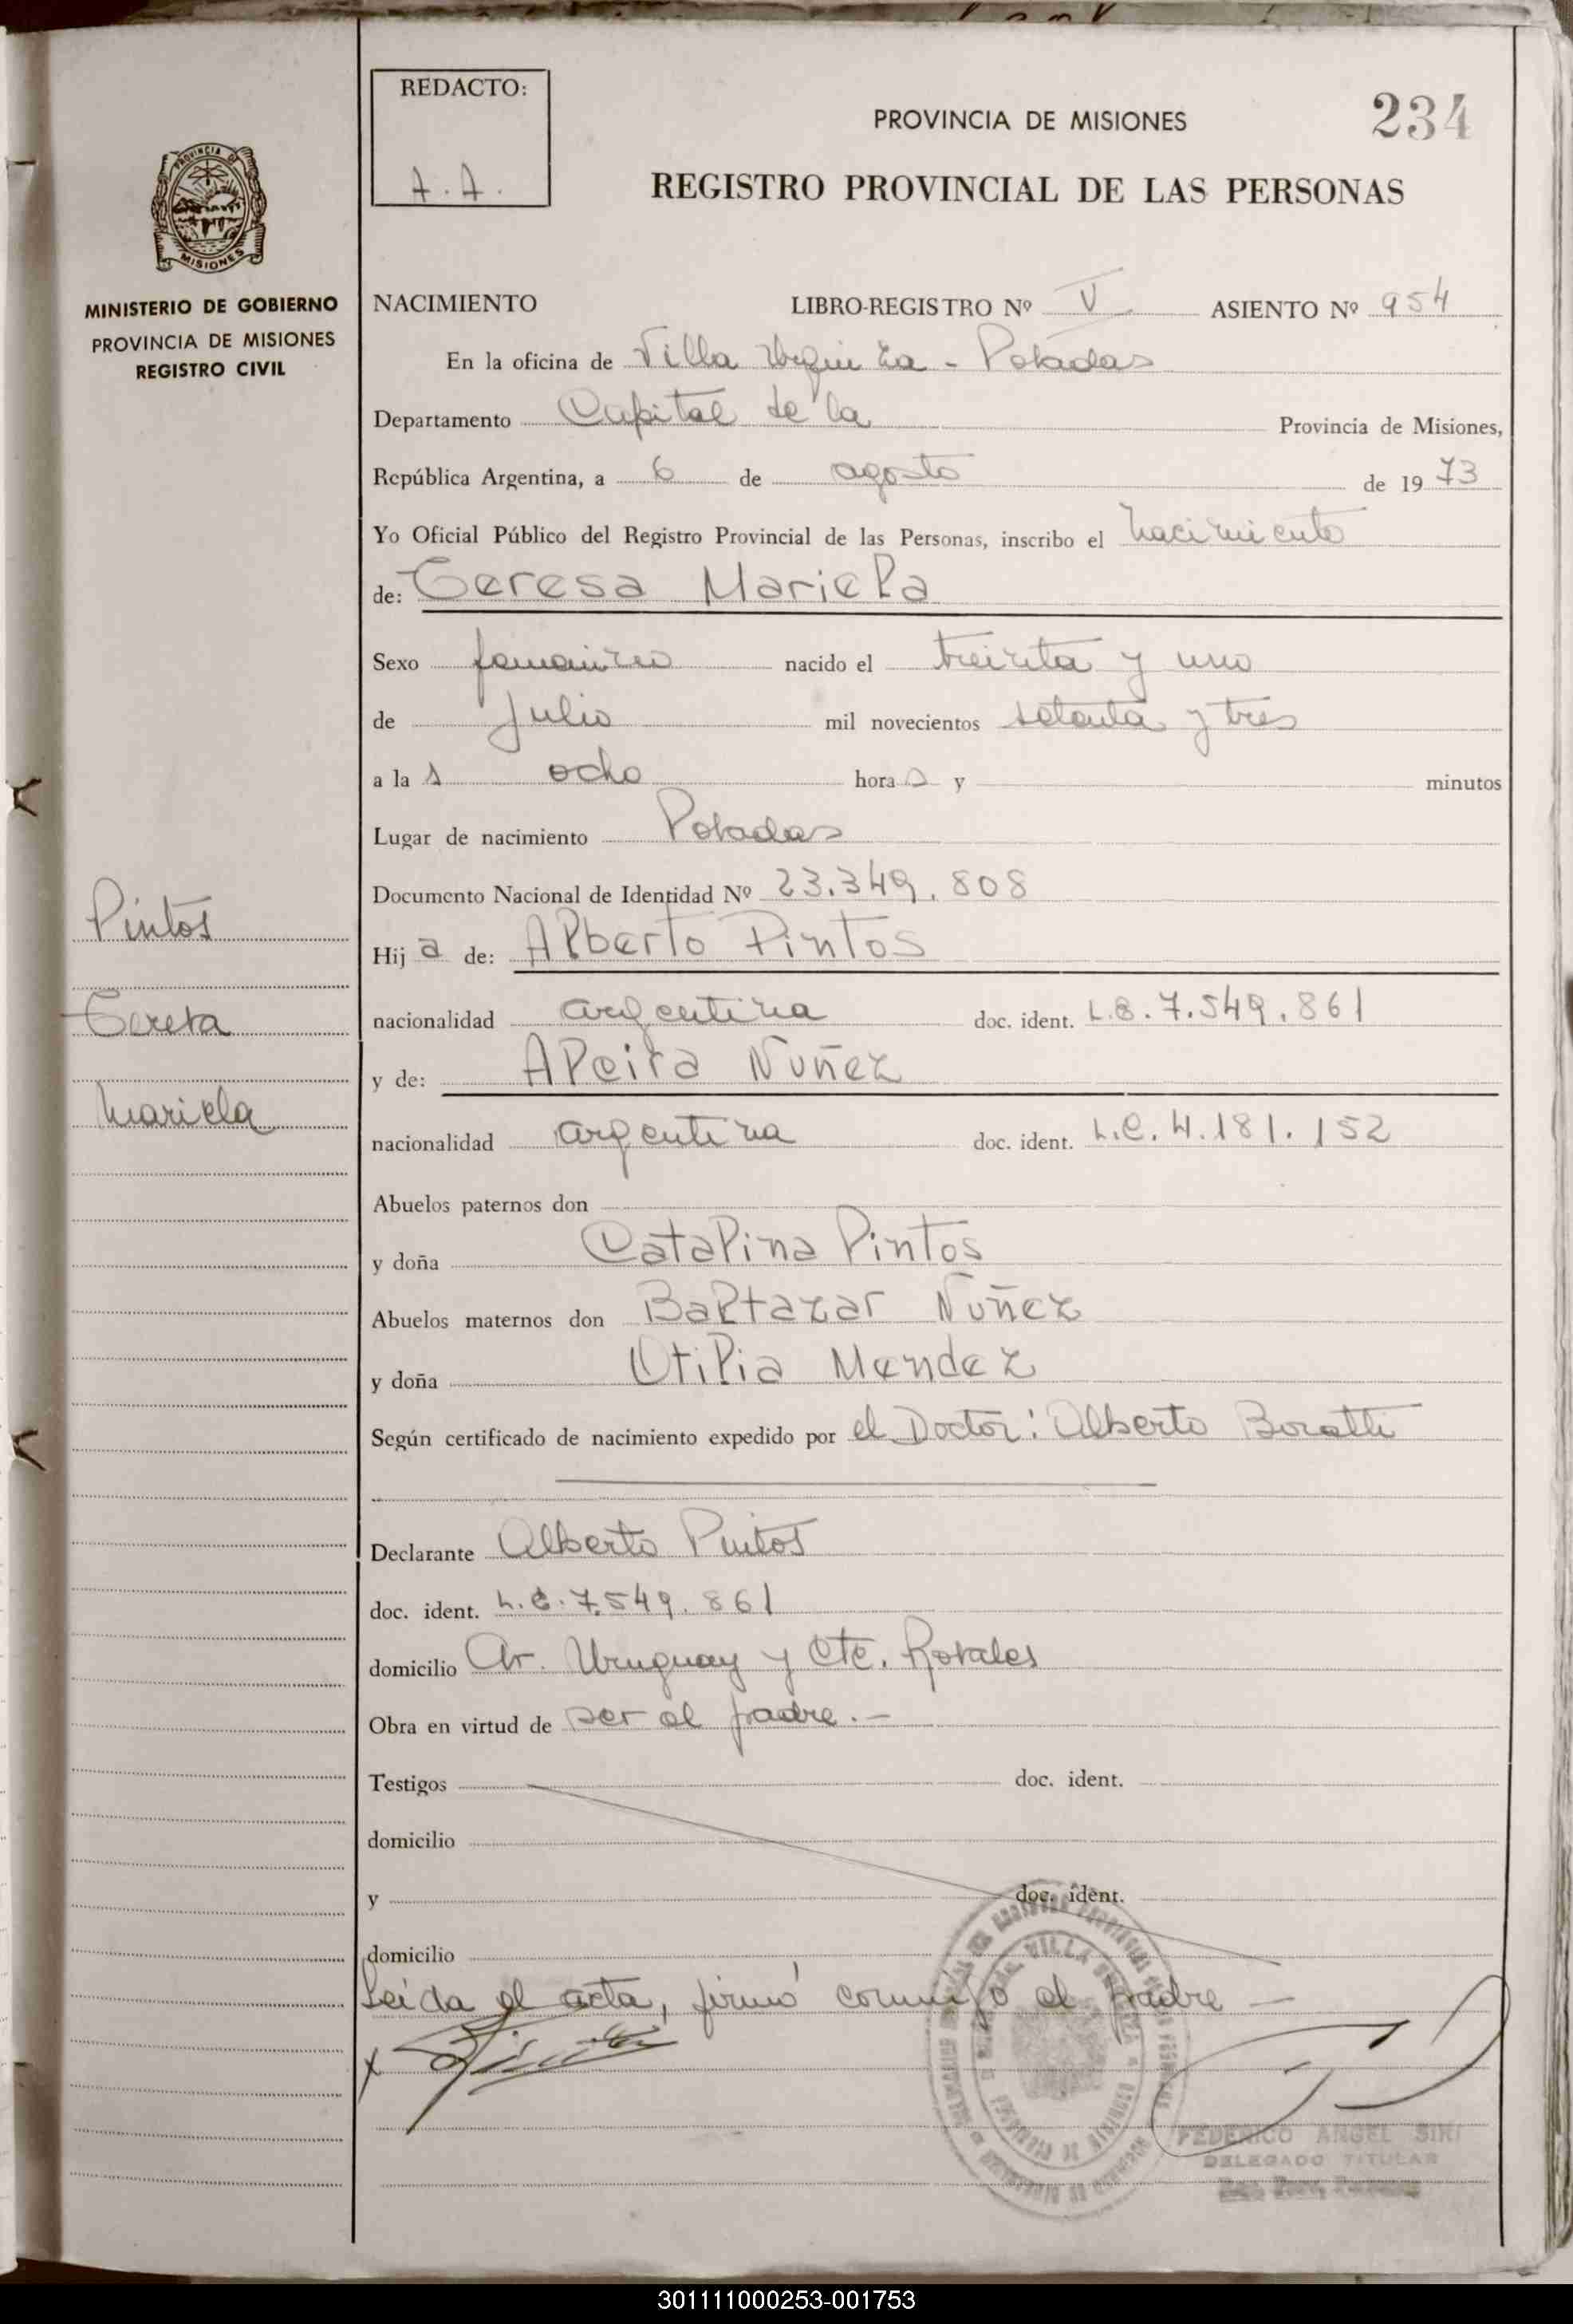 REDACTO:
A.A.
234
PROVINCIA DE MISIONES
REGISTRO PROVINCIAL DE LAS PERSONAS
PROVINCIA DE
MISIONES
MINISTERIO DE GOBIERNO
PROVINCIA DE MISIONES
REGISTRO CIVIL
NACIMIENTO LIBRO-REGISTRO Nº V ASIENTO Nº 954
En la oficina de Villa Urquiza - Posadas
Departamento Capital de la Provincia de Misiones,
República Argentina, a 6 de agosto de 1973
Yo Oficial Público del Registro Provincial de las Personas, inscribo el nacimiento
de: Teresa Mariela
Sexo femenino nacido el treinta y uno
de Julio mil novecientos setenta y tres
a las ocho horas y minutos
Lugar de nacimiento Posadas
Documento Nacional de Identidad Nº 23.349.808
Pintos
Hija de: Alberto Pintos
Teresa
nacionalidad argentina doc. ident. L.E. 7.549.861
y de: Alcira Nuñez
Mariela
nacionalidad argentina doc. ident. L.C. 4.181.152
Abuelos paternos don
y doña Catalina Pintos
Abuelos maternos don Baltazar Nuñez
y doña Otilia Mendez
Según certificado de nacimiento expedido por el Doctor: Alberto Boratti
Declarante Alberto Pintos
doc. ident. L.E. 7.549.861
domicilio Av. Uruguay y Cte. Rosales
Obra en virtud de ser el padre.-
Testigos doc. ident.
domicilio
y doc. ident.
domicilio
Leida el acta, firmó conmigo el padre -
x
FEDERICO ANGEL SIRI
DELEGADO TITULAR
301111000253-001753